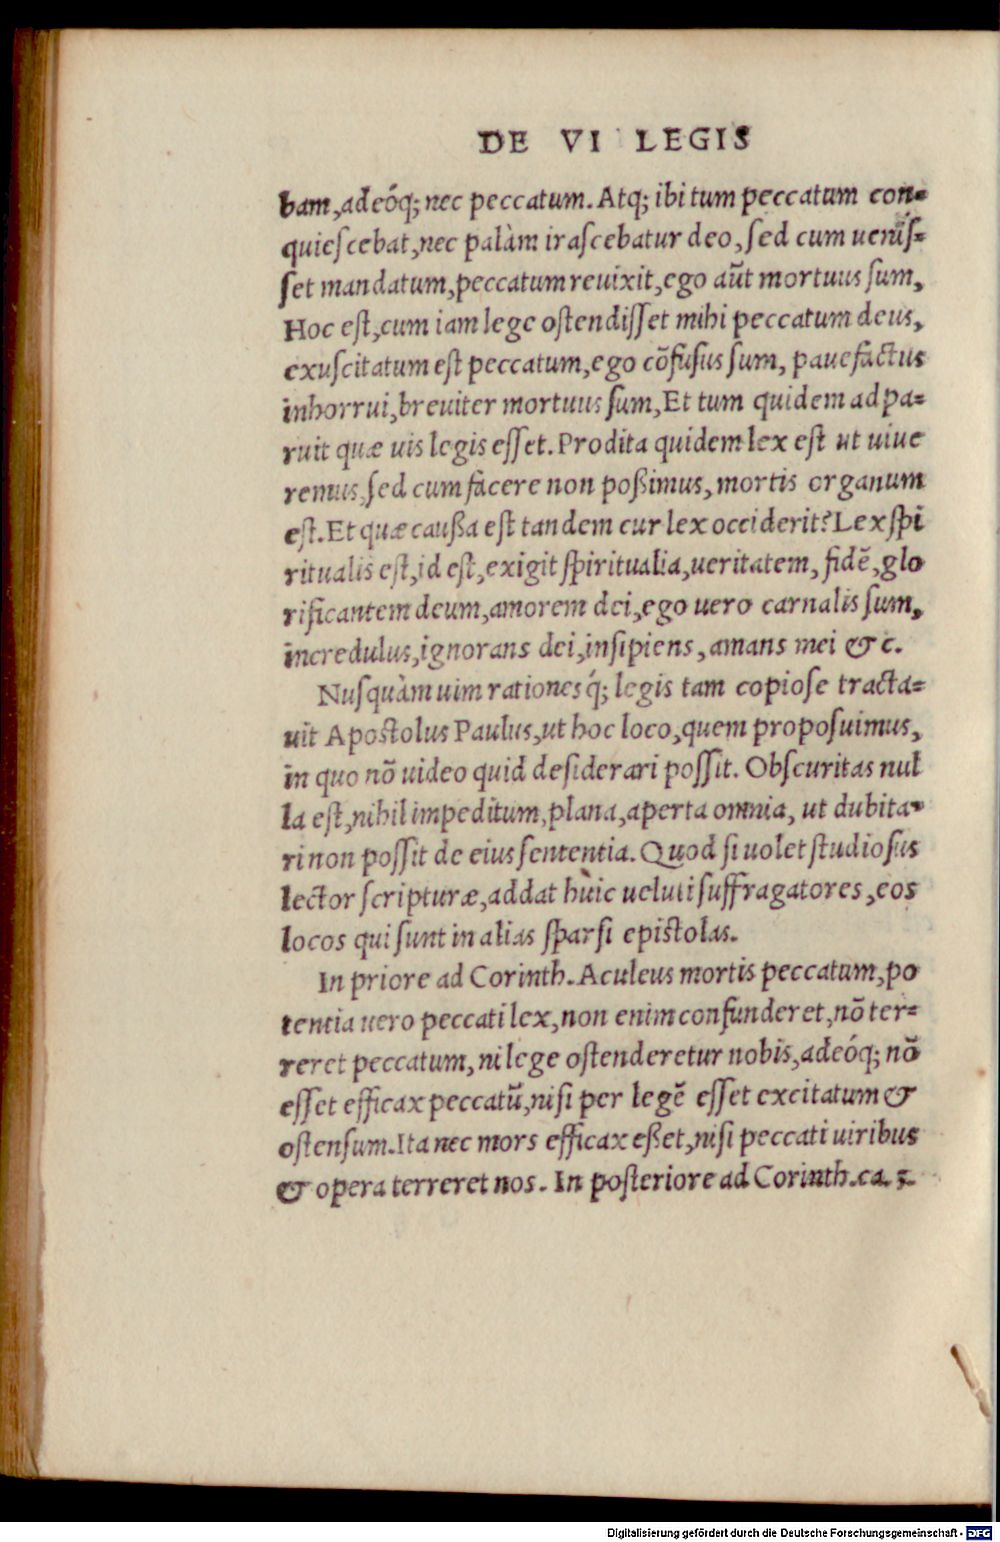 DE VI LEGIS
bam, adeóq; nec peccatum. Atq; ibi tum peccatum con=
quiescebat, nec palàm irascebatur deo, sed cum uenis=
set mandatum, peccatum reuixit, ego aũt mortuus sum,
Hoc est, cum iam lege ostendisset mihi peccatum deus,
exuscitatum est peccatum, ego cõfusus sum, pauefactus
inhorrui, breuiter mortuus sum, Et tum quidem adpa=
ruit quæ uis legis esset. Prodita quidem lex est ut uiue
remus, sed cum facere non poßimus, mortis organum
est. Et quæ caußa est tandem cur lex occiderit? Lex spi
ritualis est, id est, exigit spiritualia, ueritatem, fidẽ, glo
rificantem deum, amorem dei, ego uero carnalis sum,
incredulus, ignorans dei, insipiens, amans mei & c.
Nusquàm uim rationesq́; legis tam copiose tracta=
uit Apostolus Paulus, ut hoc loco, quem proposuimus,
in quo nõ uideo quid desiderari possit. Obscuritas nul
la est, nihil impeditum, plana, aperta omnia, ut dubita=
ri non possit de eius sententia. Quod si uolet studiosus
lector scripturæ, addat hùic ueluti suffragatores, eos
locos qui sunt in alias sparsi epistolas.
In priore ad Corinth. Aculeus mortis peccatum, po
tentia uero peccati lex, non enim confunderet, nõ ter=
reret peccatum, ni lege ostenderetur nobis, adeóq; nõ
esset efficax peccatũ, nisi per legẽ esset excitatum &
ostensum. Ita nec mors efficax eßet, nisi peccati uiribus
& opera terreret nos. In posteriore ad Corinth. ca. 3.
Digitalisierung gefördert durch die Deutsche Forschungsgemeinschaft - DFG